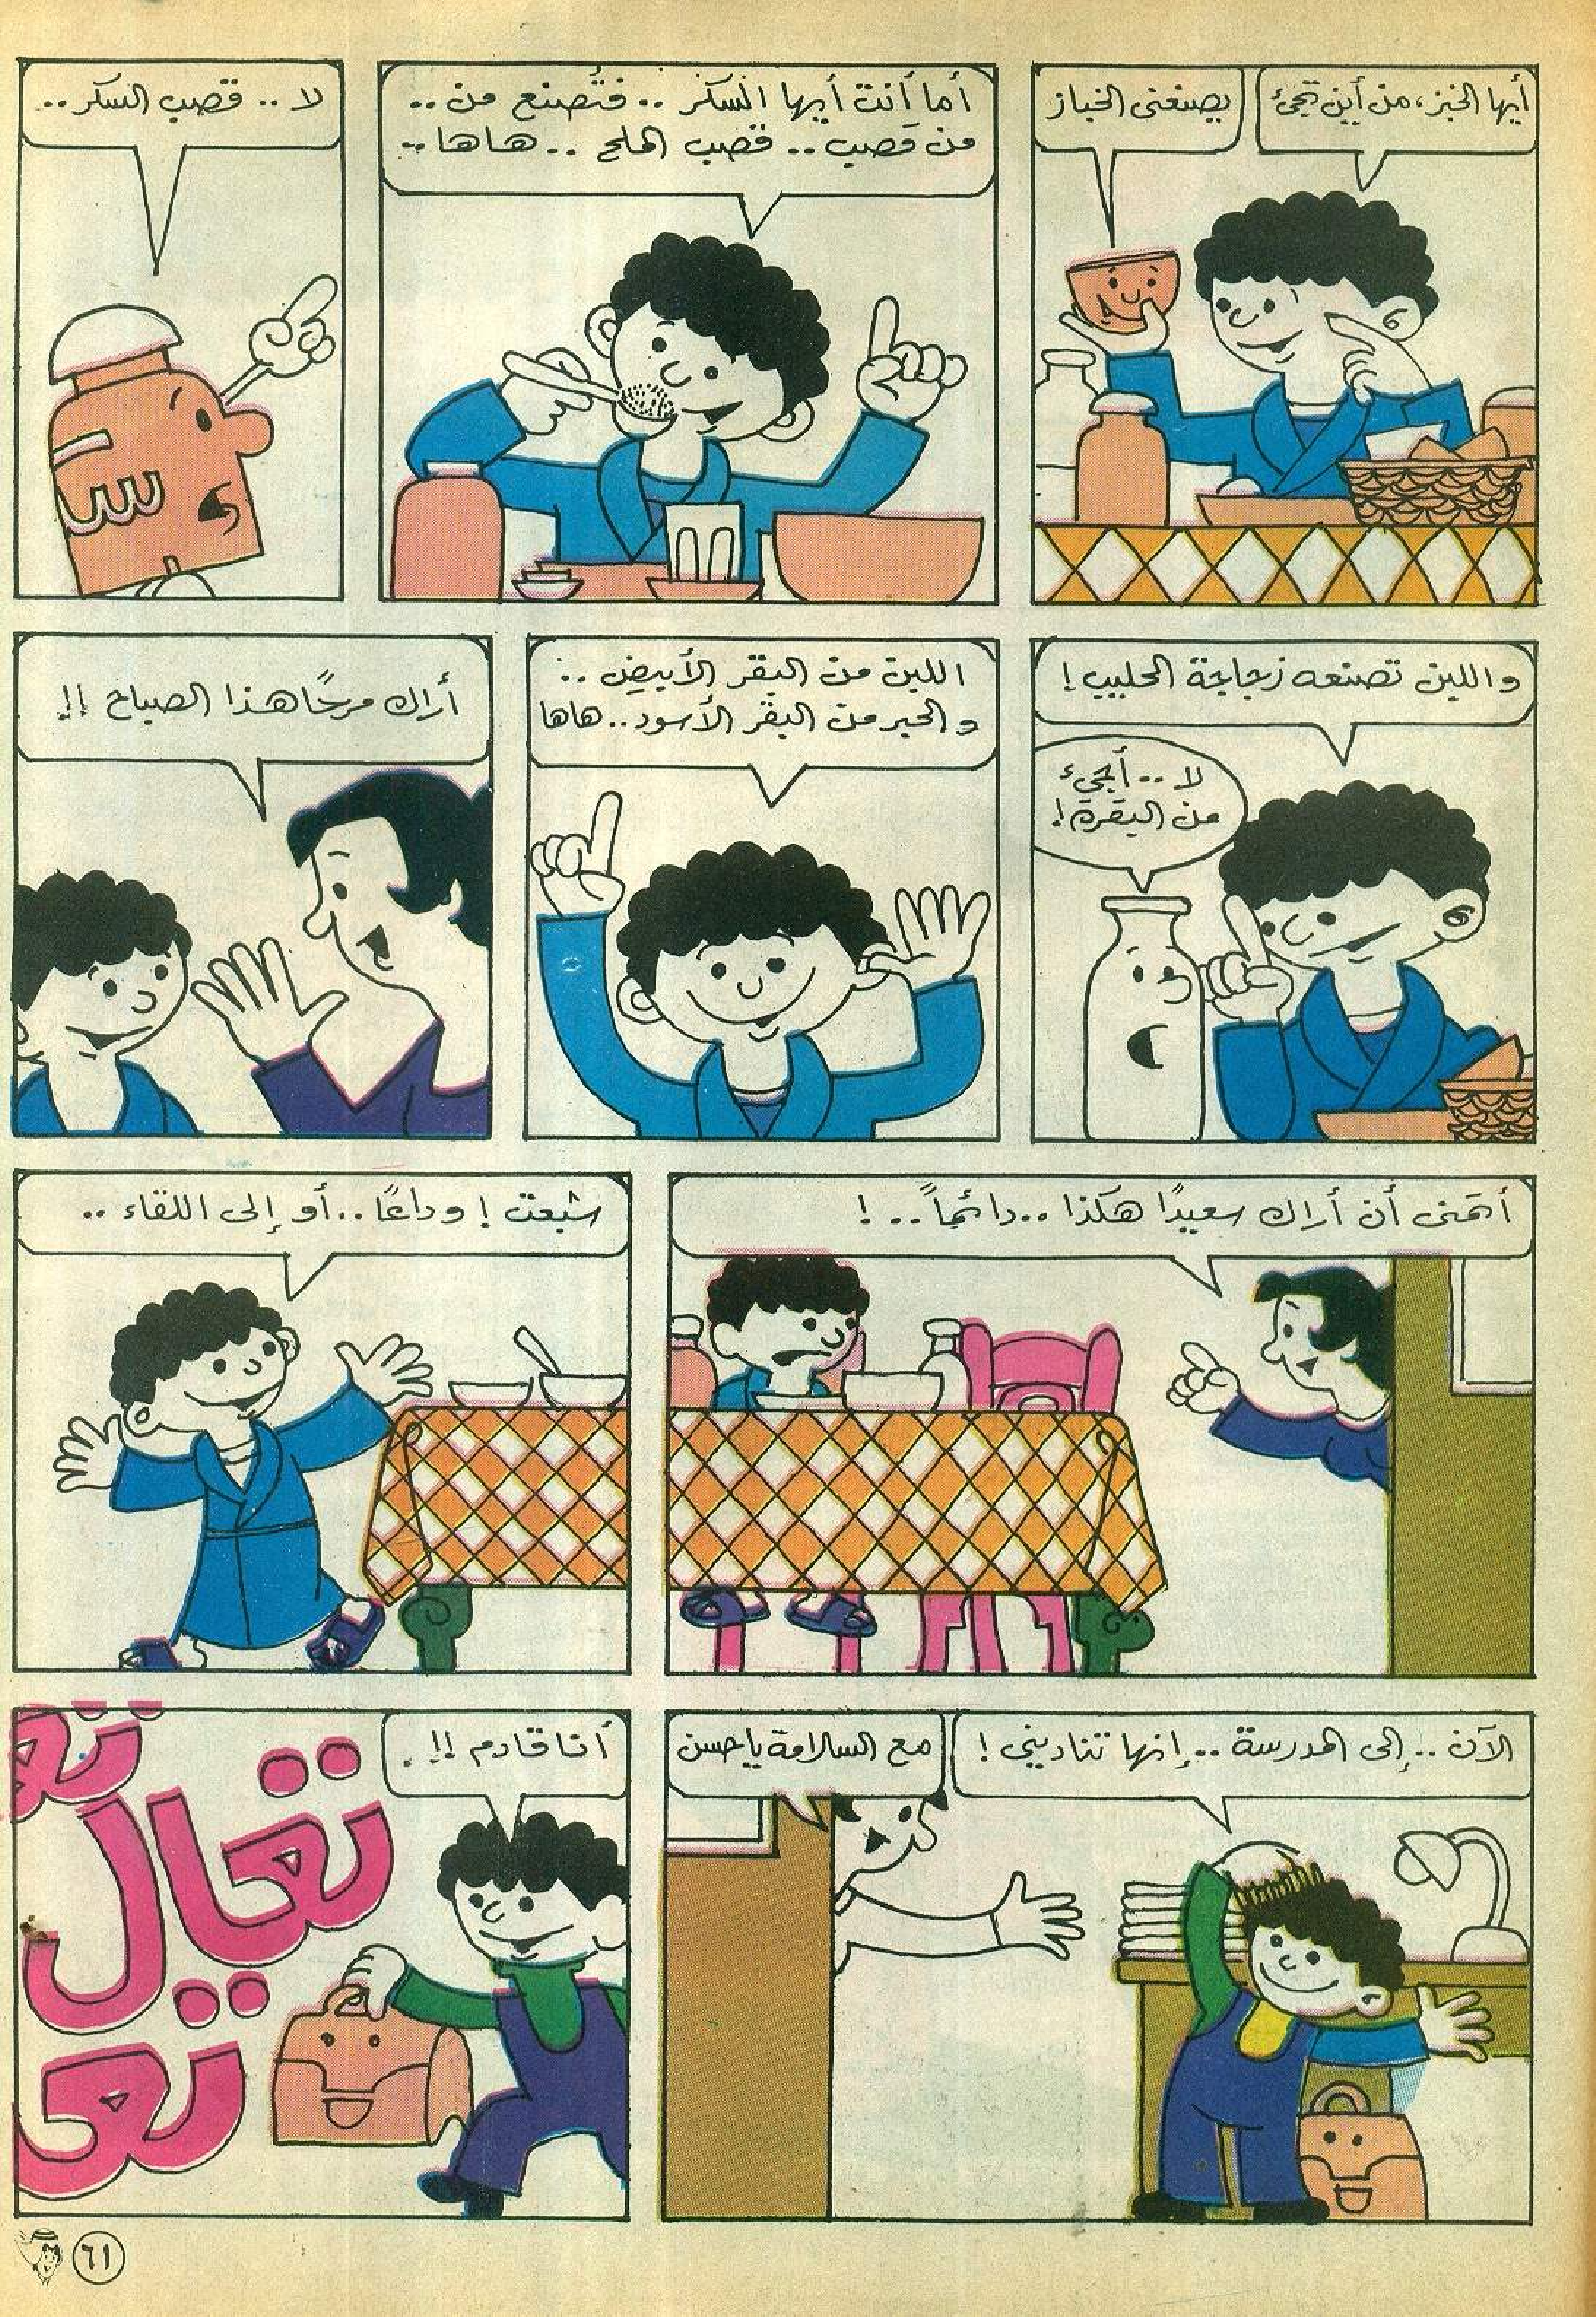 أيها الخبز، من أين تجيء
يصنعني الخباز
أما أنت أيها السكر .. فتُصنع من ..
من قصب .. قصب الملح .. هاها ..
لا .. قصب السكر ..
سـ
واللبن تصنعه زجاجة الحليب !
لا .. أجيء
من البقرة !
اللبن من البقر الأبيض ..
والحبر من البقر الأسود .. هاها
أراك مرحًا هذا الصباح !!
أتمنى أن أراك سعيدًا هكذا .. دائمًا .. !
شبعت ! وداعًا .. أو إلى اللقاء ..
الآن .. إلى المدرسة .. إنها تناديني !
مع السلامة يا حسن
أنا قادم !! .
تعـ
تعال
تعـ
٦١